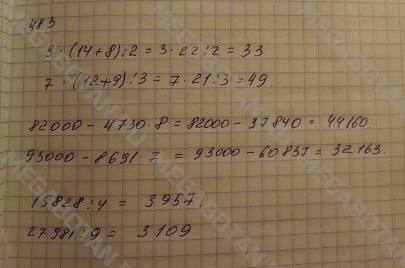 483
3 · (14+8):2 = 3 · 22:2 = 33
7 · (12+9):3 = 7 · 21:3 = 49.
82000 - 4730 · 8 = 82000 - 37840 = 44160
93000 - 8691 · 7 = 93000 - 60837 = 32163.
15828:4 = 3957.
27981:9 = 3109